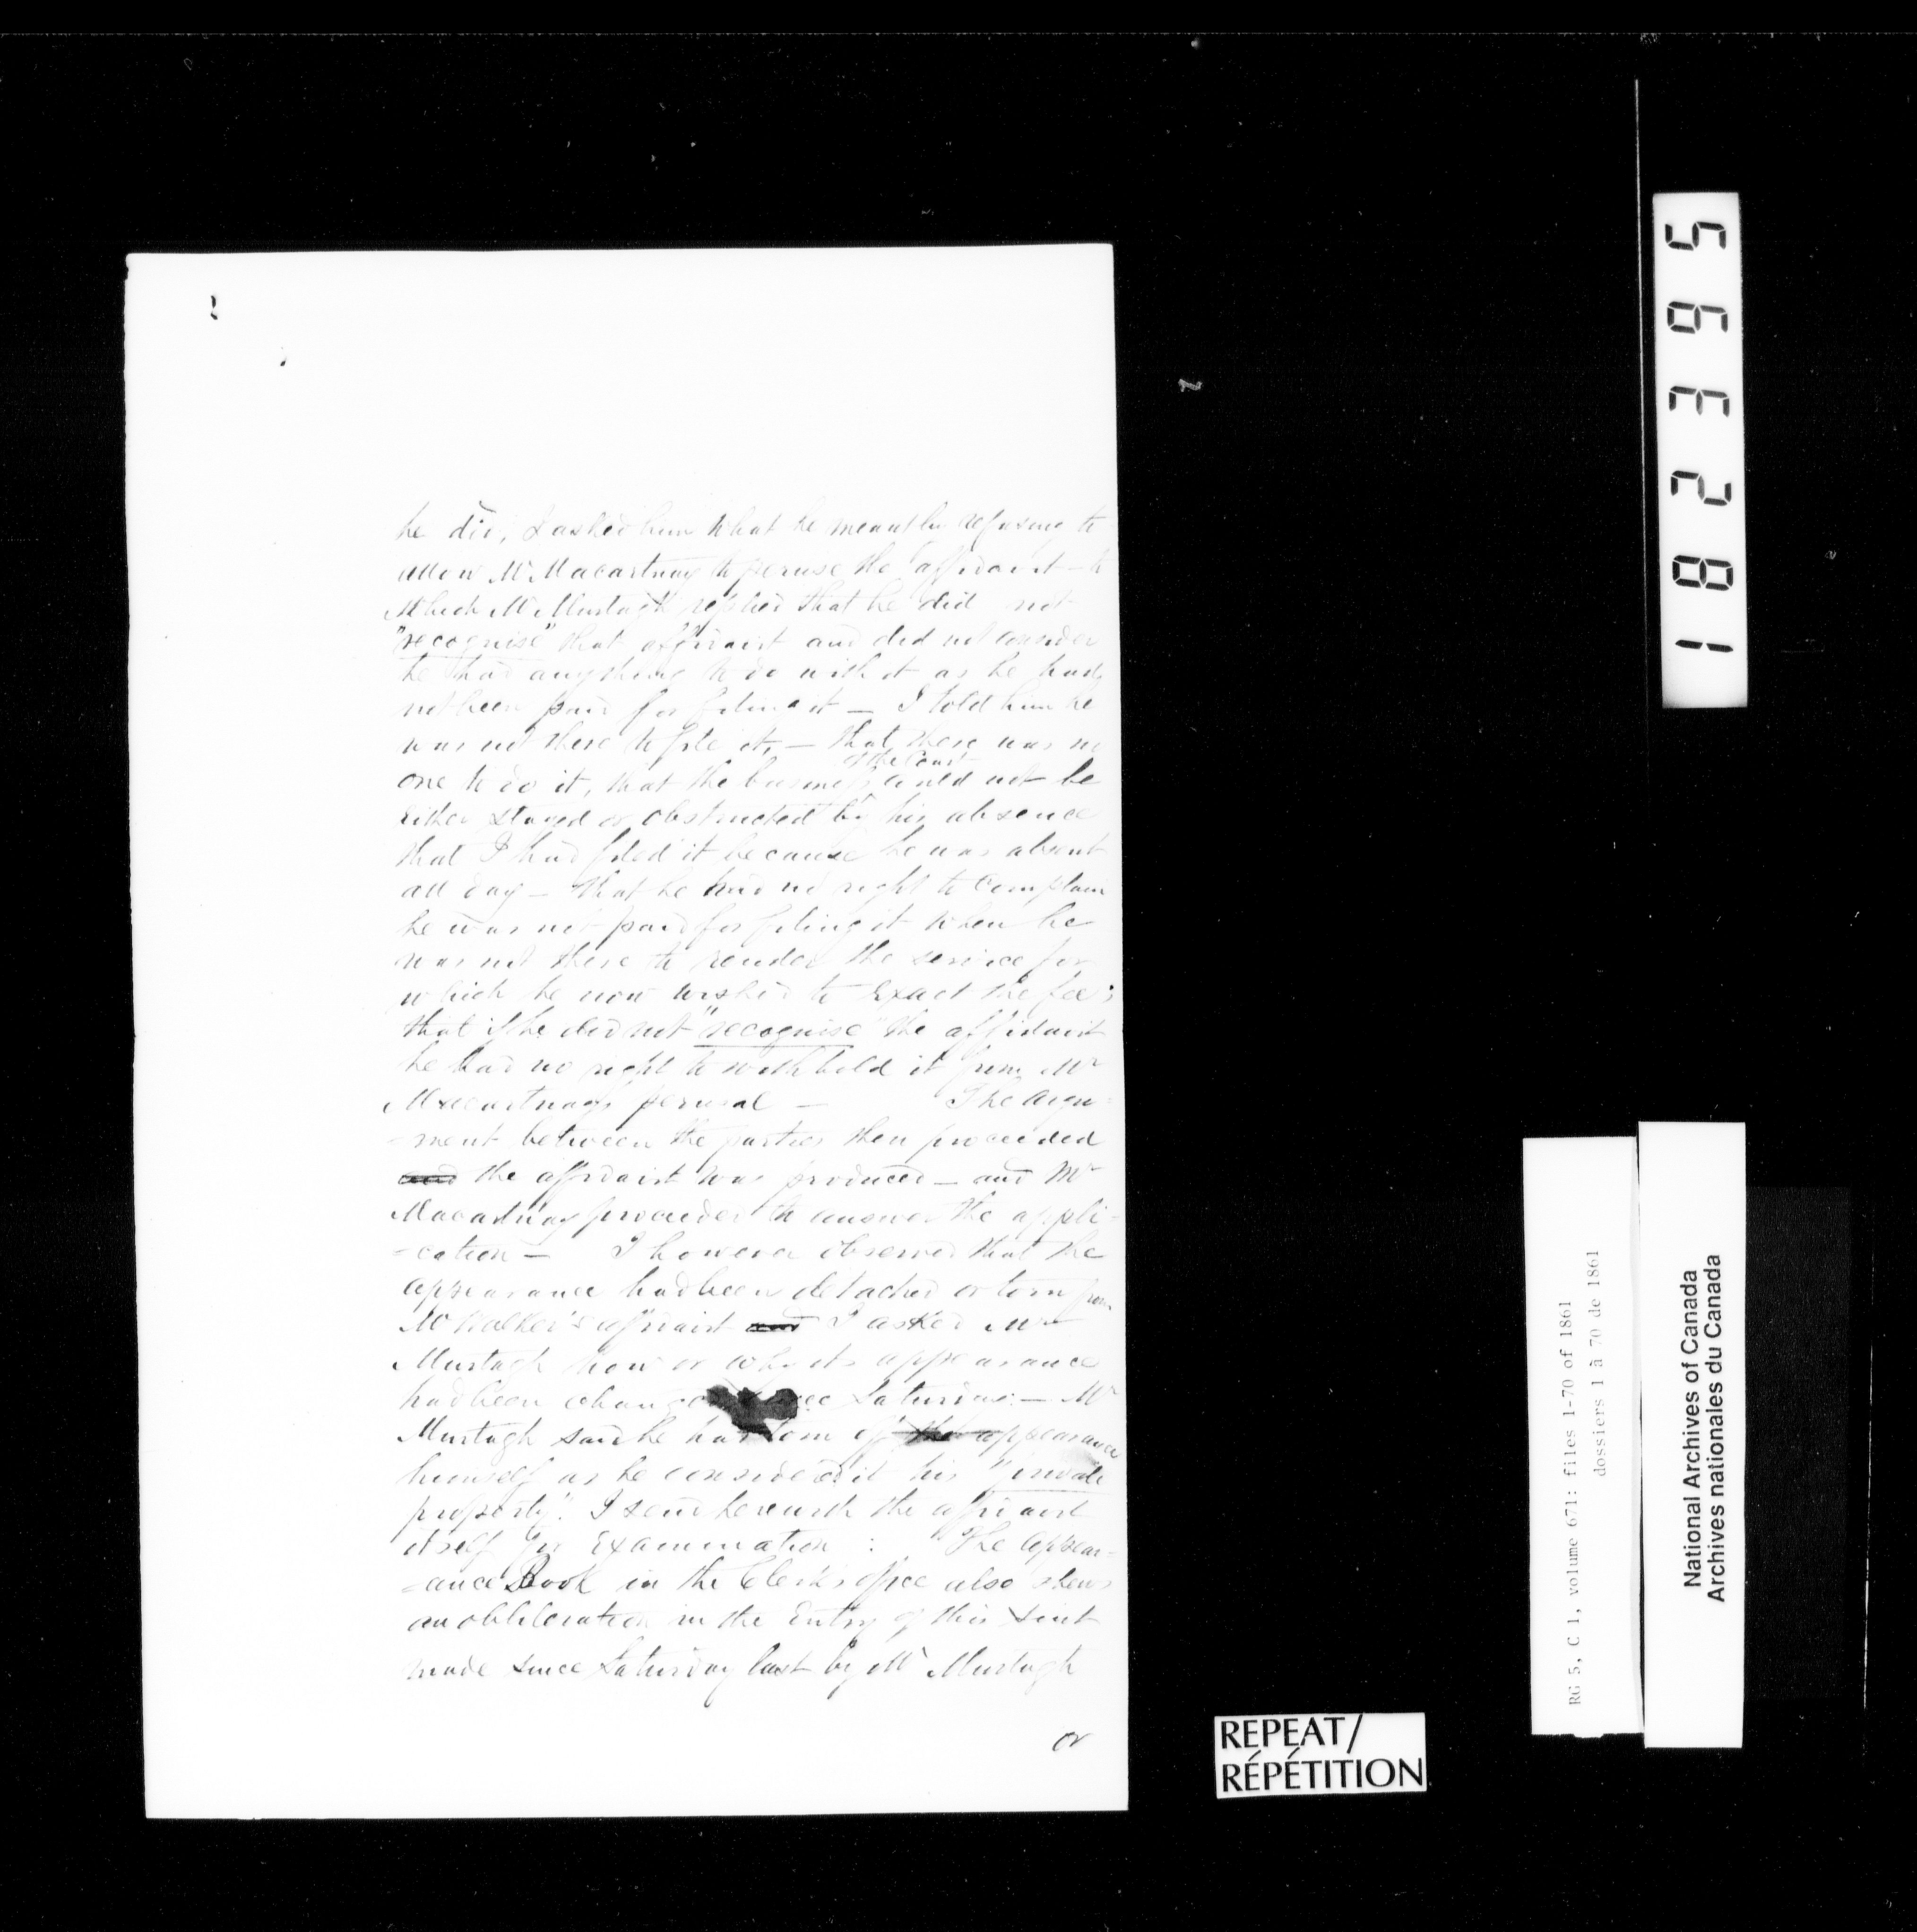 he did, I asked him what he meant by refusing to
allow Mr Macartney to peruse the affidavit - to
which Mr Murtagh replied that he did not
"recognise" that affidavit and did not consider
he had anything to do with it as he had
not been paid for filing it - I told him he
was not there to file it, - that there was no
of the Court
one to do it, that the business could not be
either stayed or obstructed by his absence
that I had filed it because he was absent
all day - that he had no right to complain
he was not paid for filing it when he
was not there to render the service for
which he now wished to exact the fee;
that if he did not "recognise" the affidavit
he had no right to withhold it from Mr
Macartney's perusal - The argu-
-ment between the parties then proceeded
and the affidavit was produced - and Mr
Macartney proceeded to answer the appli-
-cation - I however observed that the
appearance had been detached or torn from
Mr Walker's affidavit and I asked Mr
Murtagh how or why its appearance
had been changed Saturday: - Mr
Murtagh said he had torn off the appearance
himself as he considered it his "private
property". I send herewith the affidavit
itself for examination : The appear-
-ance Book in the Clerk's office also shews
an obliteration in the Entry of this suit
made since Saturday last by Mr Murtagh
or
182395
REPEAT/
RÉPÉTITION
RG 5, C 1, volume 671: files 1-70 of 1861
dossiers 1 à 70 de 1861
National Archives of Canada
Archives nationales du Canada